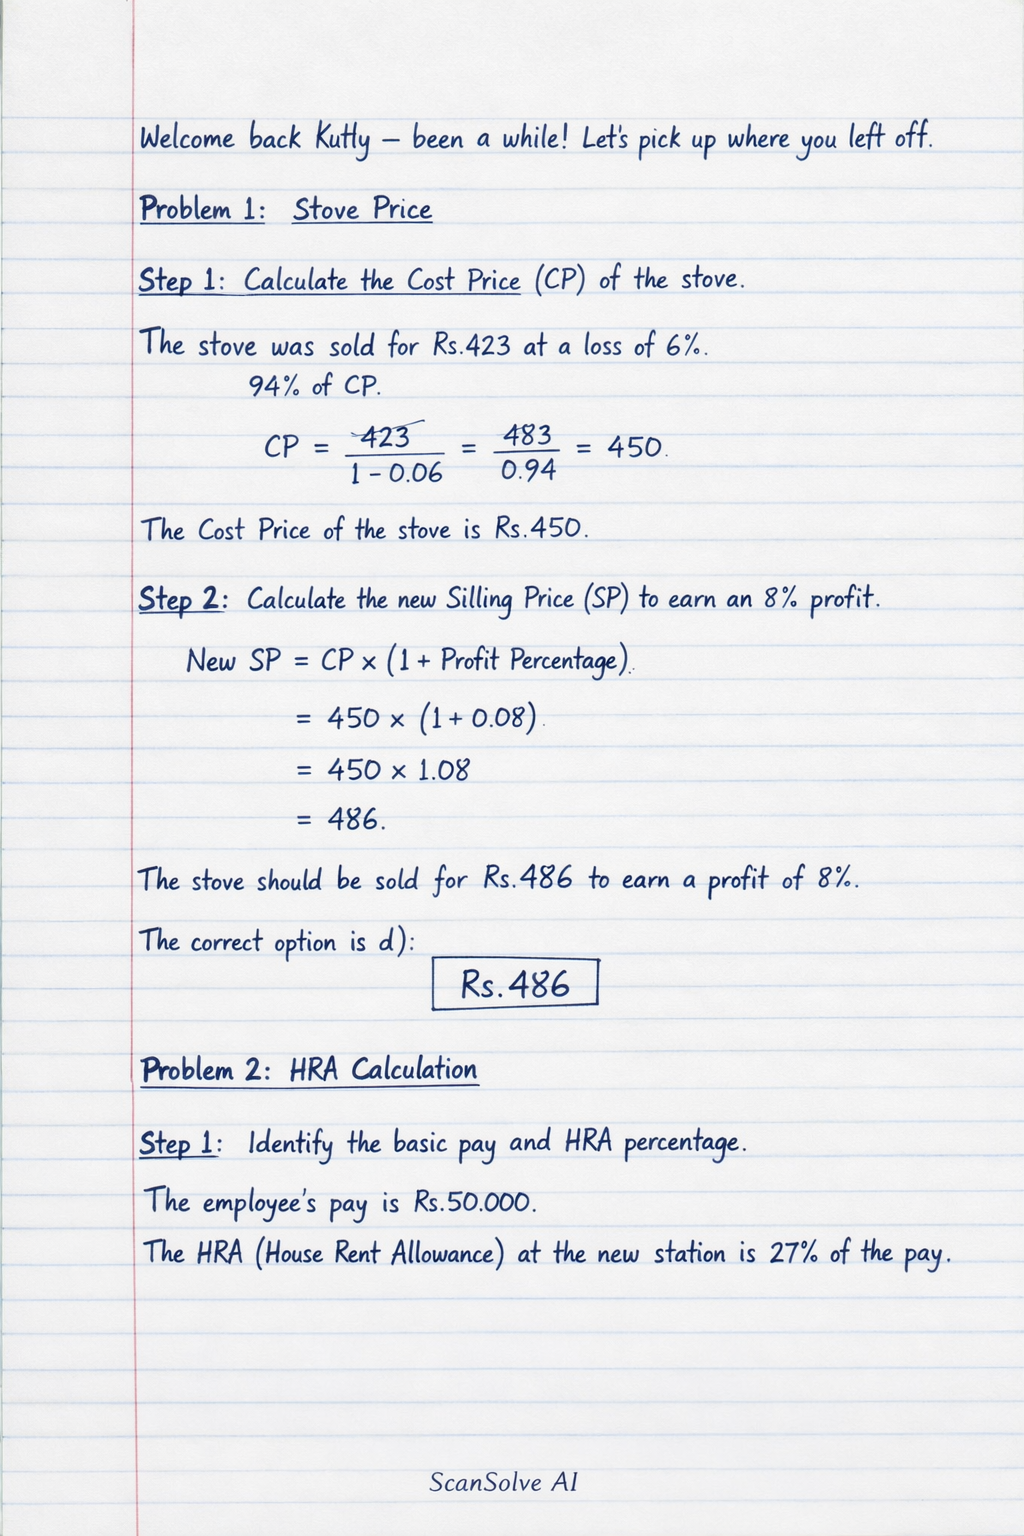 Welcome back Kutty – been a while! Let's pick up where you left off.
Problem 1: Stove Price
Step 1: Calculate the Cost Price (CP) of the stove.
The stove was sold for Rs.423 at a loss of 6%.
94% of CP.
CP = 423 / 1 - 0.06 = 483 / 0.94 = 450.
The Cost Price of the stove is Rs.450.
Step 2: Calculate the new Silling Price (SP) to earn an 8% profit.
New SP = CP × (1 + Profit Percentage).
= 450 × (1 + 0.08).
= 450 × 1.08
= 486.
The stove should be sold for Rs.486 to earn a profit of 8%.
The correct option is d):
Rs.486
Problem 2: HRA Calculation
Step 1: Identify the basic pay and HRA percentage.
The employee's pay is Rs.50.000.
The HRA (House Rent Allowance) at the new station is 27% of the pay.
ScanSolve AI